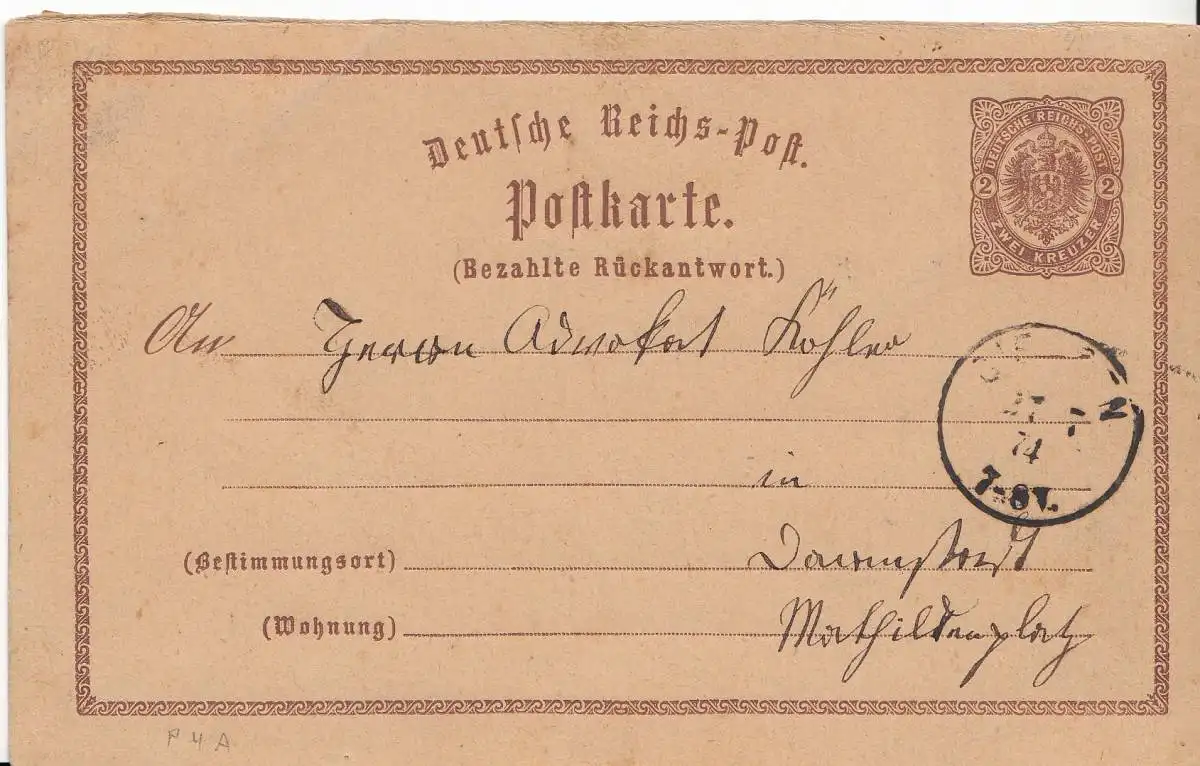 Deutsche Reichs-Post.
Postkarte.
(Bezahlte Rückantwort.)
DEUTSCHE REICHS-POST
2 2
ZWEI KREUZER
An Herrn Advokat Köhler
27 7
74
7-8V.
in
(Bestimmungsort) Darmstadt
(Wohnung) Mathildenplatz
P 4 A